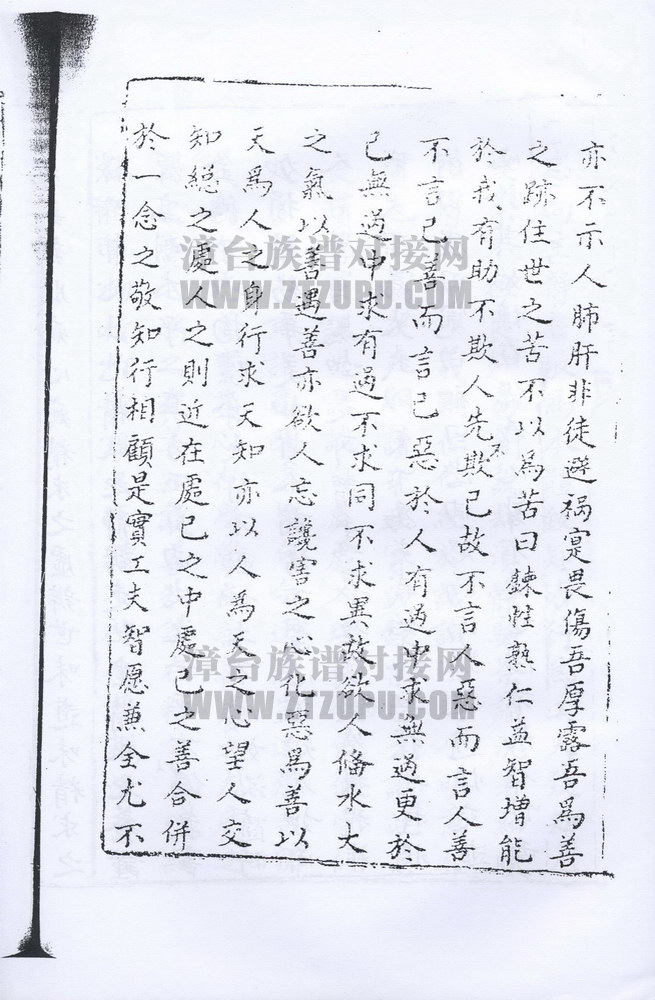 亦不示人肺肝非徒避禍寔畏傷吾厚露吾為善
之跡住世之苦不以為苦曰鍊性熟仁益智增能
於我有助不欺人先不欺己故不言人惡而言人善
不言己善而言己惡於人有過中求無過更於
己無過中求有過不求同不求異故欲人偹水大
之氣以善遇善亦欲人忘讒害之心化惡為善以
天為人之身行求天知亦以人為天之心望人交
知總之處人之則近在處己之中處己之善合併
於一念之敬知行相顧是實工夫智愿兼全尤不
漳台族谱对接网
WWW.ZTZUPU.COM
漳台族谱对接网
WWW.ZTZUPU.COM